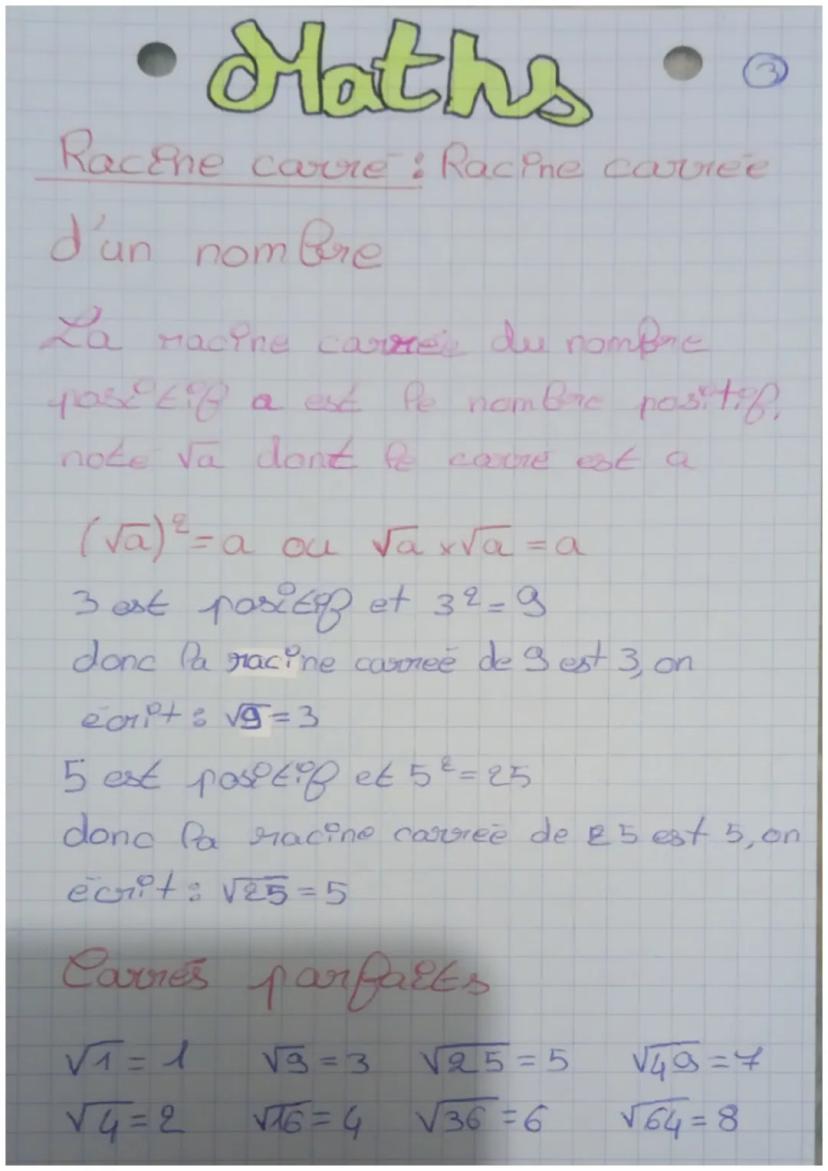 Maths
3
Racine carré : Racine carrée
d'un nombre
La racine carrée du nombre
positif a est le nombre positif,
noté √a dont le carré est a
(√a)² = a ou √a x √a = a
3 est positif et 3² = 9
donc la racine carreé de 9 est 3, on
écrit : √9 = 3
5 est positif et 5² = 25
donc la racine carreé de 25 est 5, on
écrit : √25 = 5
Carrés parfaits
√1 = 1 √9 = 3 √25 = 5 √49 = 7
√4 = 2 √16 = 4 √36 = 6 √64 = 8